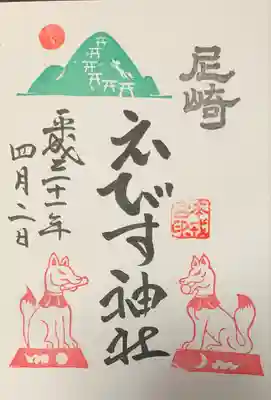 尼崎
えびす神社
平成三十一年
四月二日